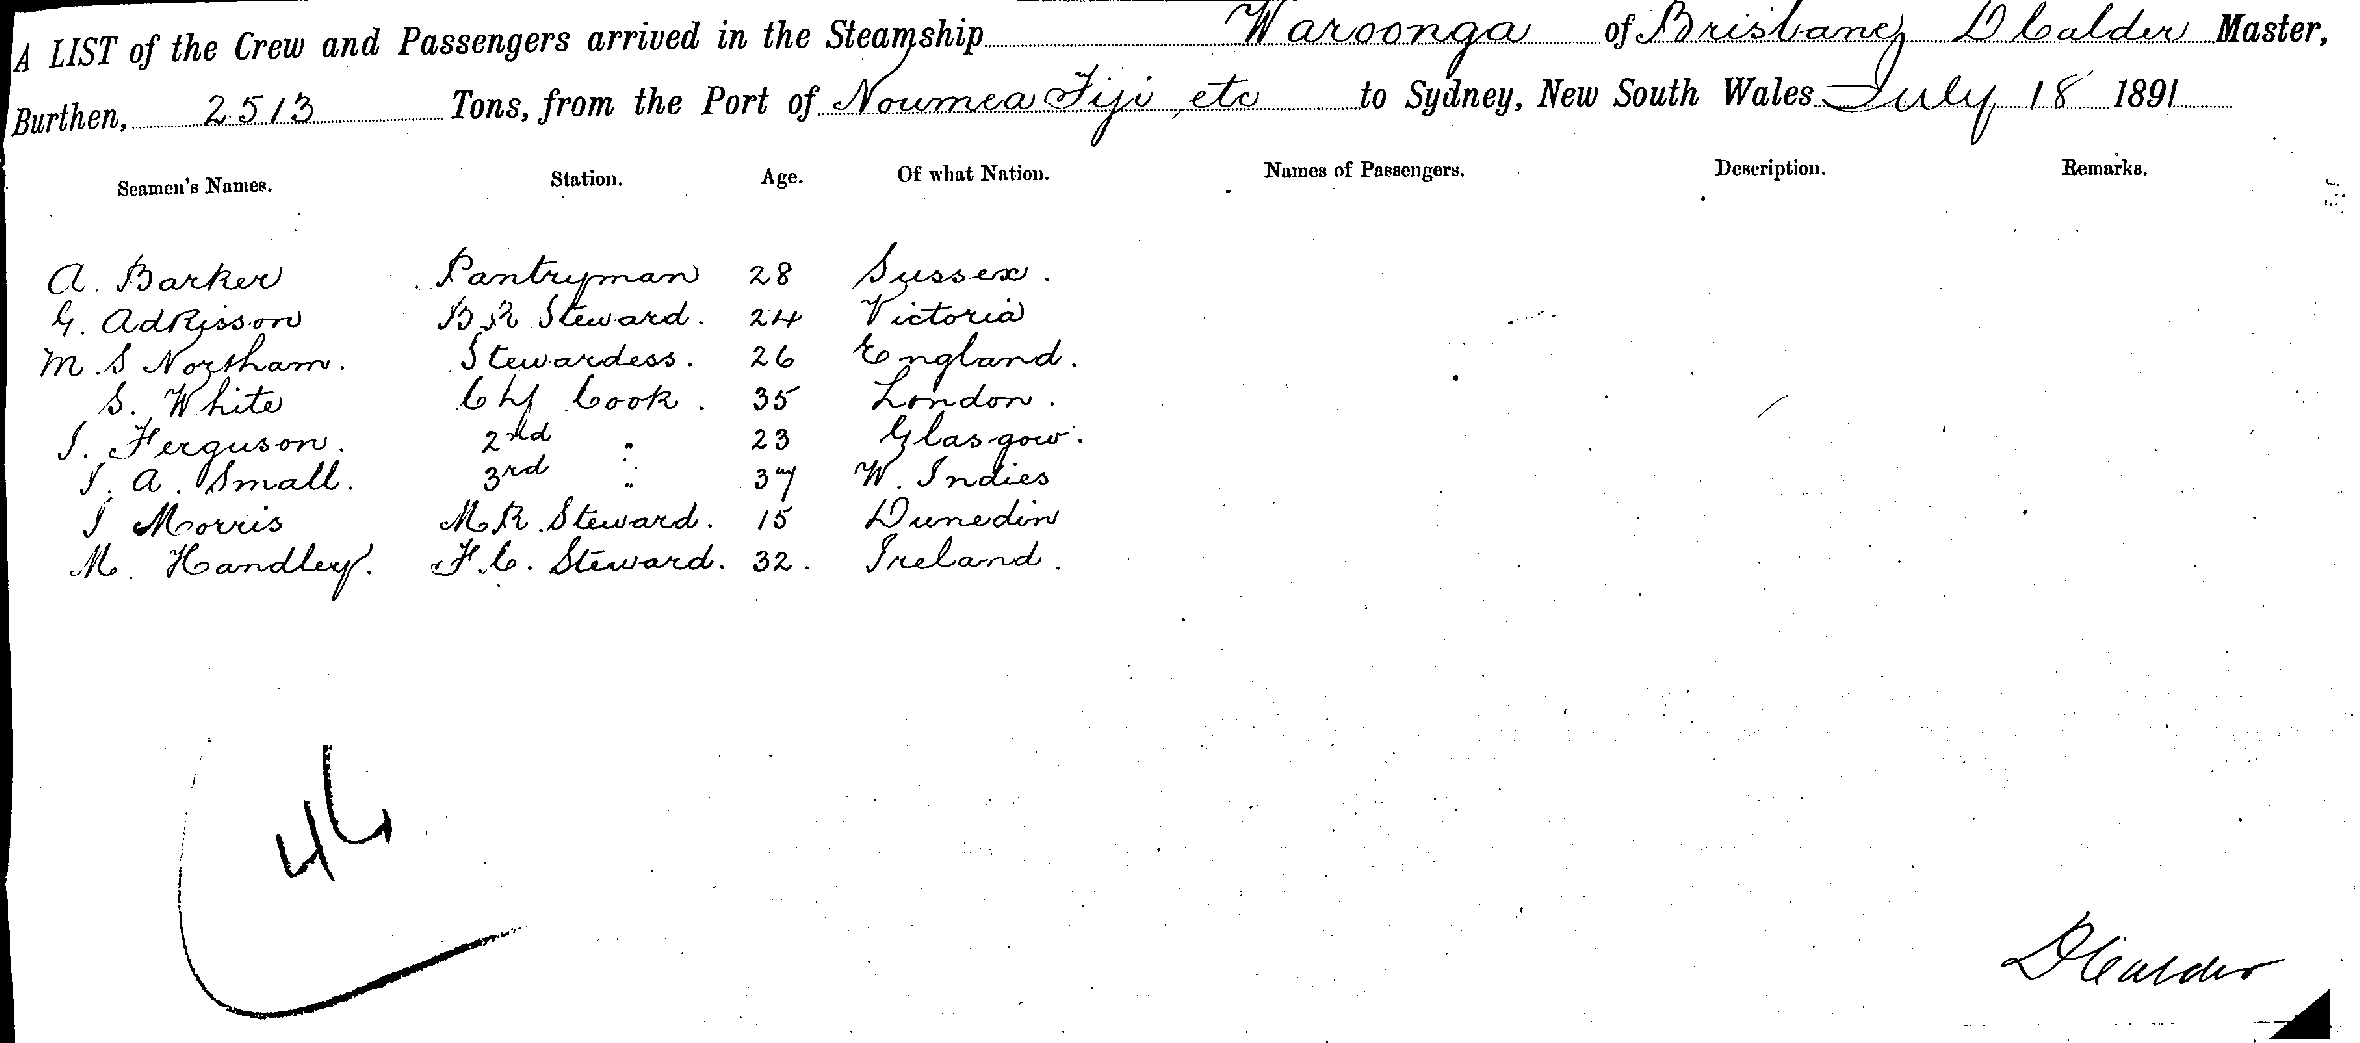 A LIST of the Crew and Passengers arrived in the Steamship Waroonga of Brisbane, D Calder Master,
Burthen, 2513 Tons, from the Port of Noumea Fiji, etc to Sydney, New South Wales July 18 1891
Seamen's Names. Station. Age. Of what Nation. Names of Passengers. Description. Remarks.
A. Barker Pantryman 28 Sussex.
G. Adkisson B R Steward. 24 Victoria
M. S Northam. Stewardess. 26 England.
S. White Chf Cook. 35 London.
J. Ferguson. 2nd " 23 Glasgow.
J. A. Small. 3rd " 37 W. Indies
J Morris M. R. Steward. 15 Dunedin
M. Handley. F. C. Steward. 32. Ireland.
46
D Calder